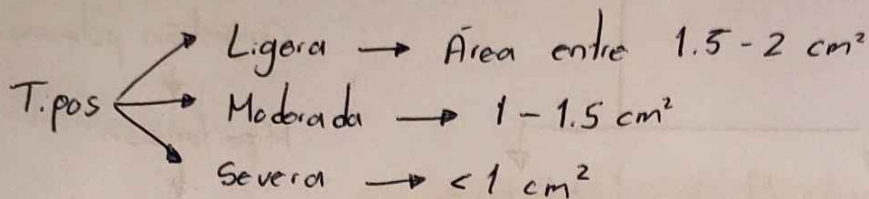 Tipos
Ligera → Área entre 1.5 - 2 cm²
Moderada → 1 - 1.5 cm²
Severa → < 1 cm²